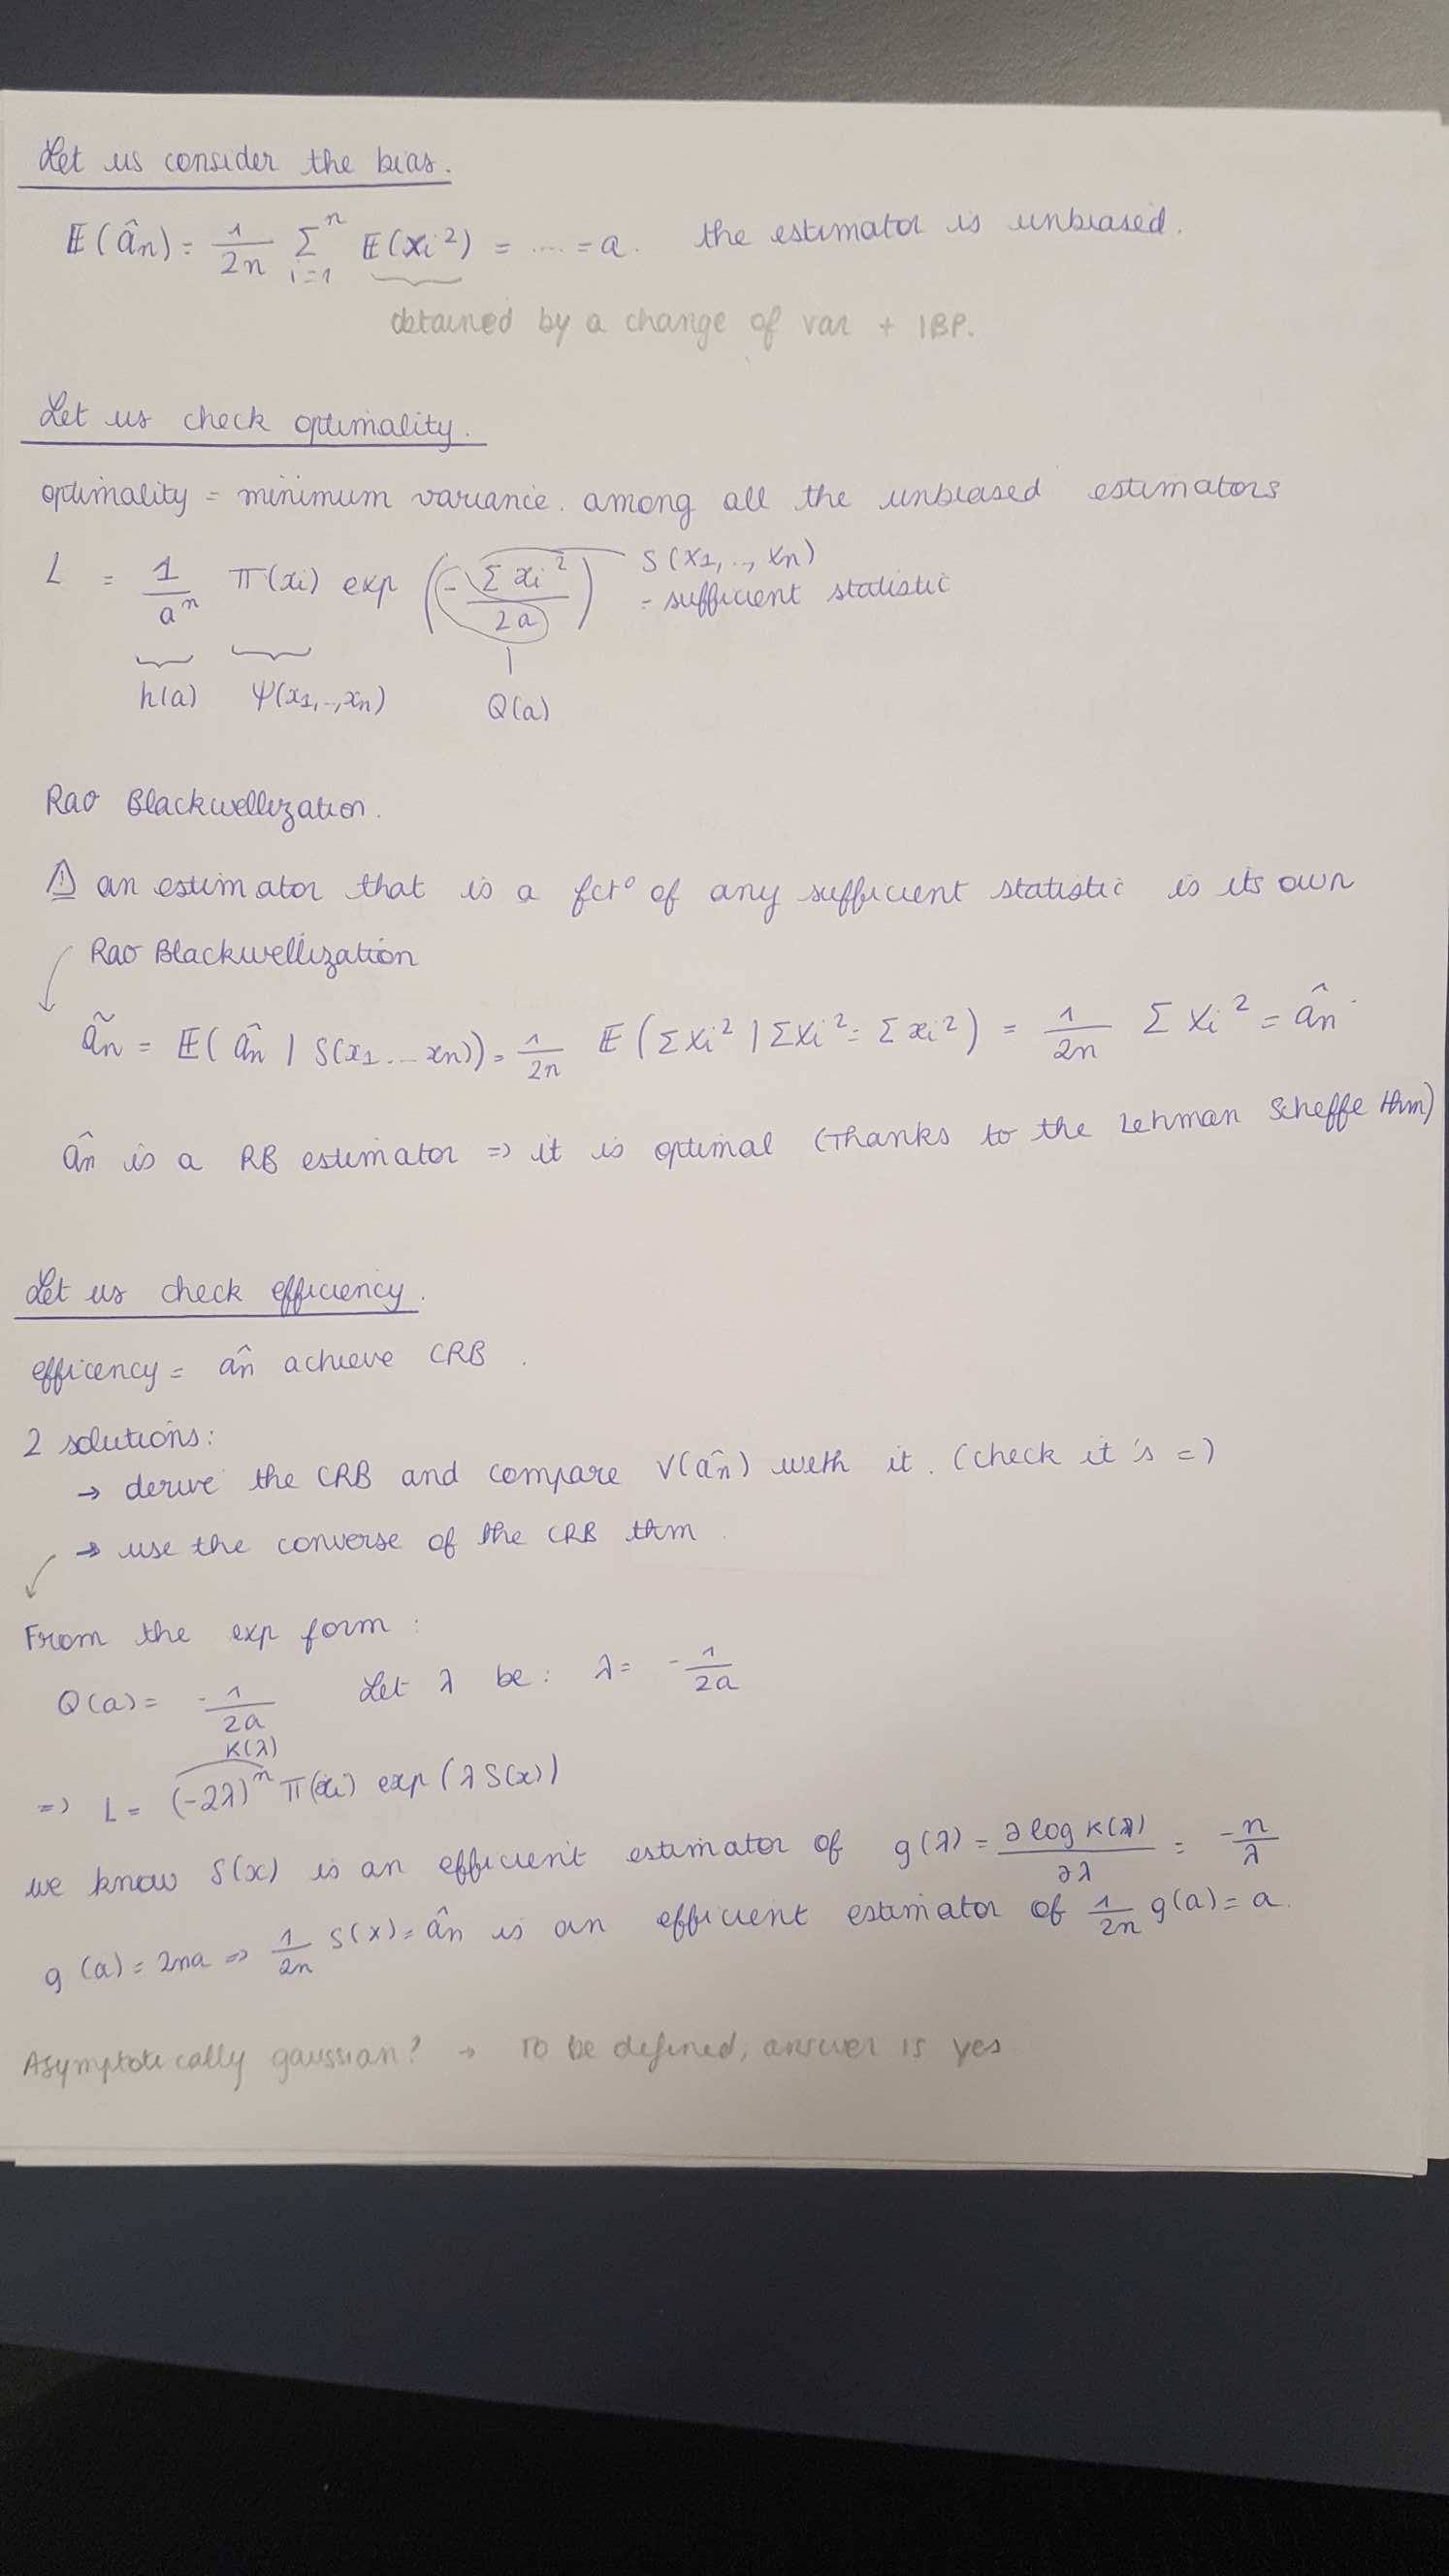 Let us consider the bias.
𝔼(ân) = 1/2n Σ_{i=1}^{n} 𝔼(xi²) = .... = a. the estimator is unbiased.
obtained by a change of var + IBP.
Let us check optimality.
optimality = minimum variance. among all the unbiased estimators
L = 1/a^n π(xi) exp (- Σxi²/2a) S(x1,..,xn)
= sufficient statistic
h(a) Ψ(x1,..,xn) Q(a)
Rao Blackwellization.
⚠ an estimator that is a fct° of any sufficient statistic is its own
Rao Blackwellization
ãn = 𝔼(ân | S(x1...xn)) = 1/2n 𝔼(ΣXi² | ΣXi² = Σxi²) = 1/2n ΣXi² = ân.
ân is a RB estimator => it is optimal (Thanks to the Lehman Scheffe thm)
Let us check efficiency.
efficency = ân achieve CRB.
2 solutions:
→ derive the CRB and compare V(ân) with it. (check it's =)
→ use the converse of the CRB thm.
From the exp form:
Q(a) = -1/2a Let λ be: λ = -1/2a
K(λ)
=> L = (-2λ)^n π(xi) exp(λS(x))
we know S(x) is an efficient estimator of g(λ) = ∂log K(λ)/∂λ = -n/λ
g(a) = 2na => 1/2n S(x) = ân is an efficient estimator of 1/2n g(a) = a.
Asymptotically gaussian? → To be defined, answer is yes